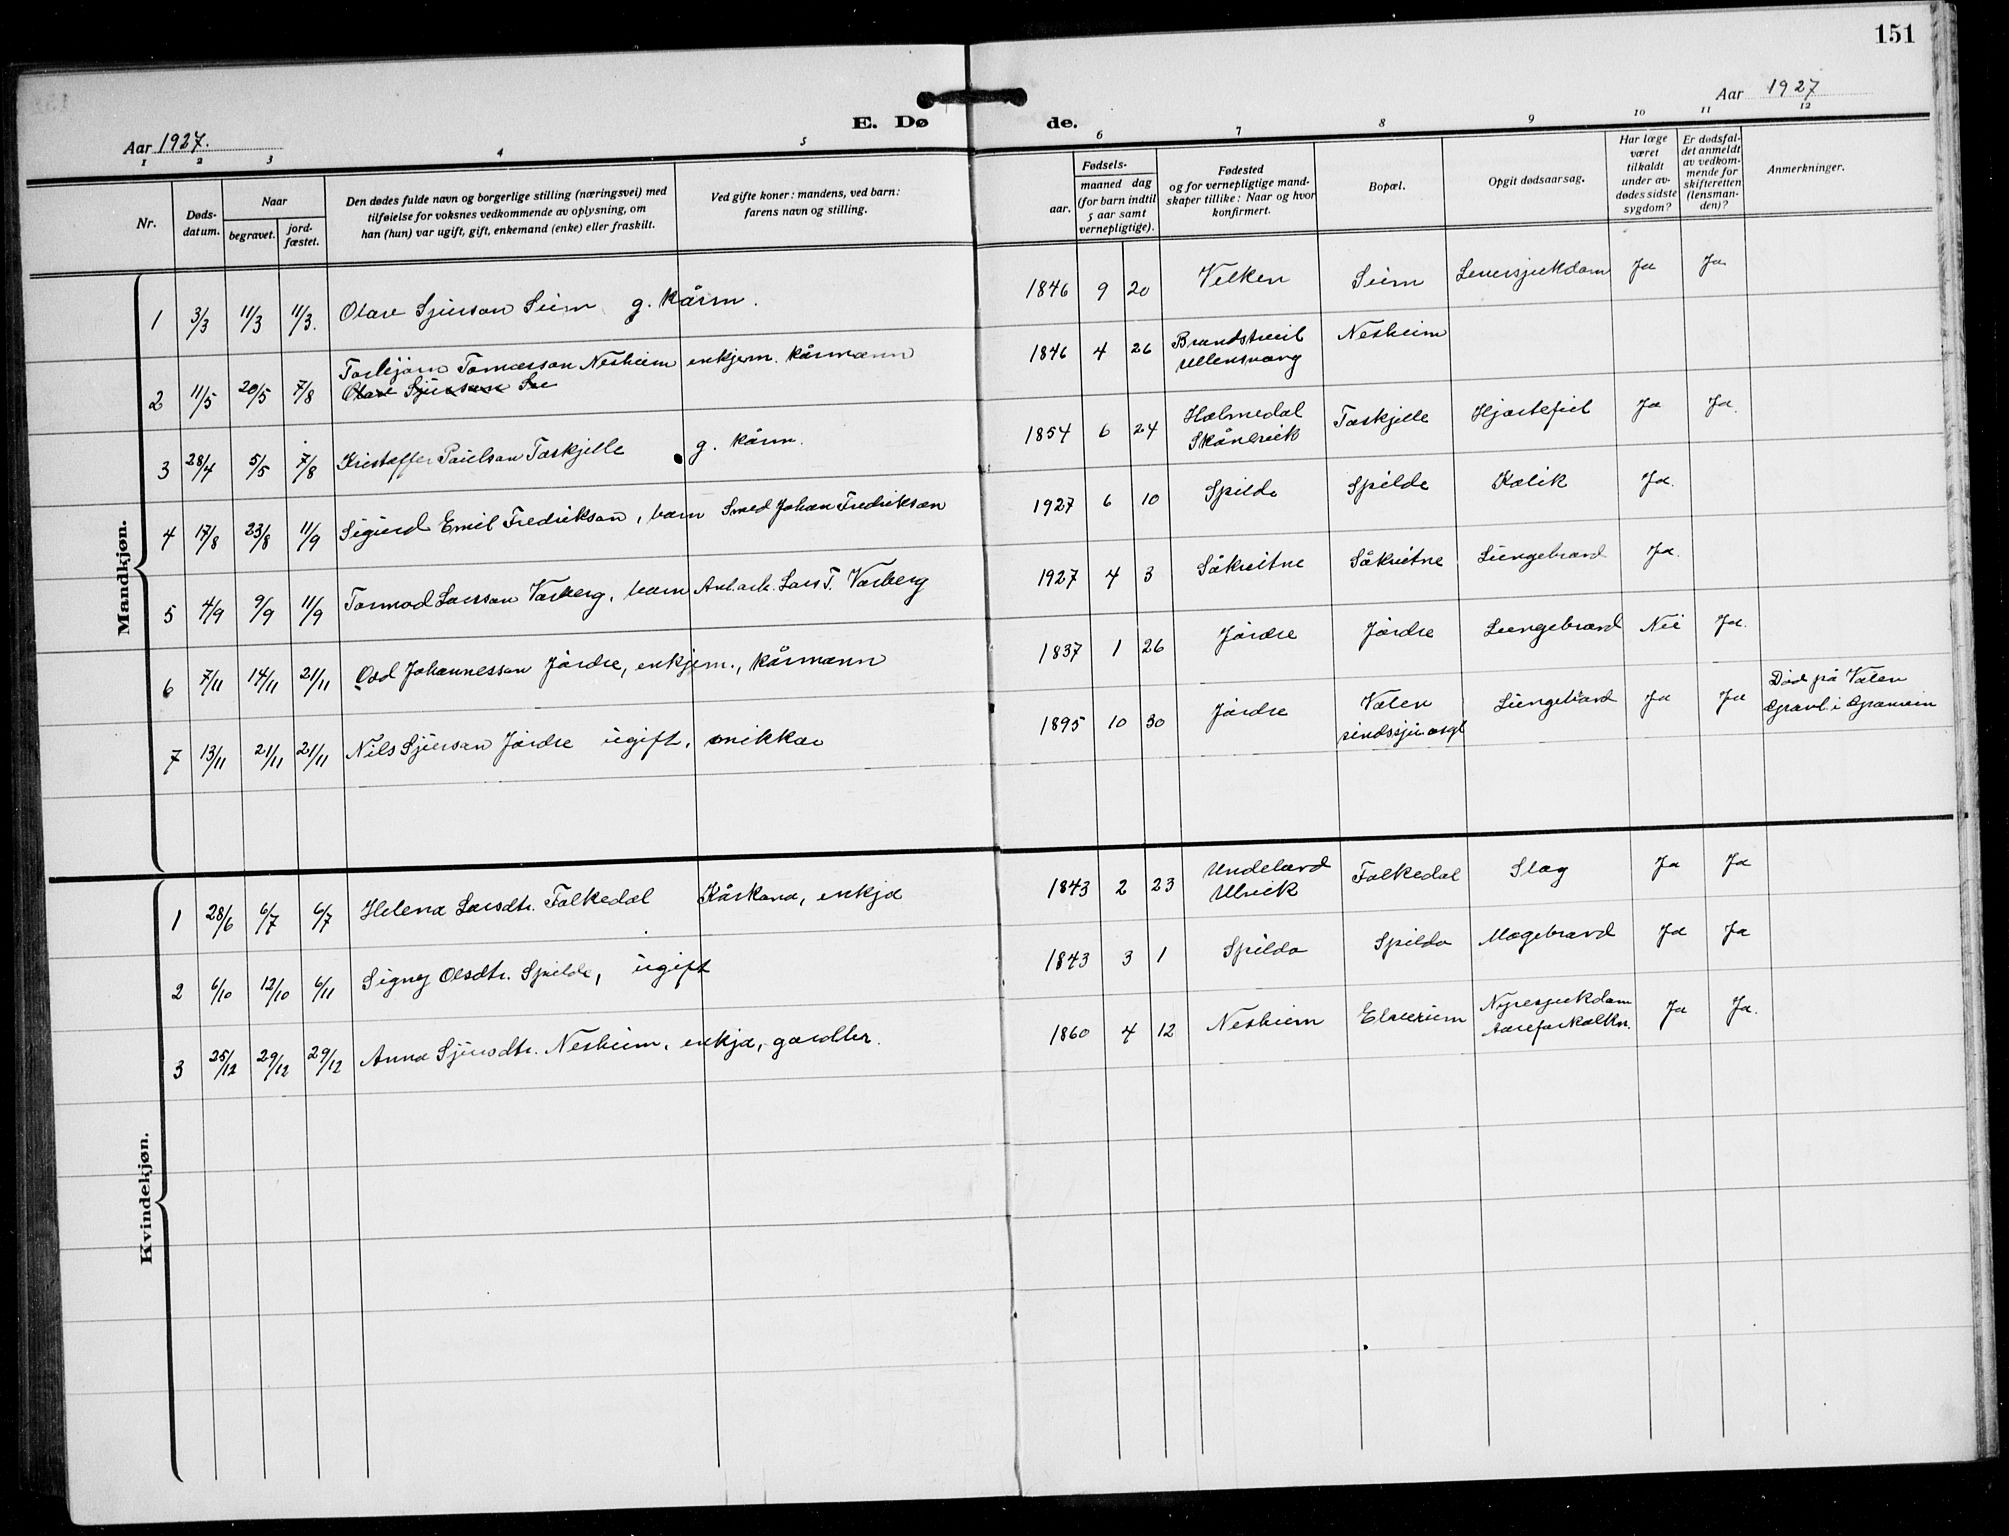 151
Aar 1927.
E. Døde.
Aar 1927
1 2 3 4 5 6 7 8 9 10 11 12
Nr.
Døds-datum.
Naar
begravet.
jord-fæstet.
Den dødes fulde navn og borgerlige stilling (næringsvei) med
tilføielse for voksnes vedkommende av oplysning, om
han (hun) var ugift, gift, enkemand (enke) eller fraskilt.
Ved gifte koner: mandens, ved barn:
farens navn og stilling.
Fødsels-
aar.
maaned dag
(for barn indtil
5 aar samt
vernepligtige).
Fødested
og for vernepligtige mand-
skaper tillike: Naar og hvor
konfirmert.
Bopæl.
Opgit dødsaarsag.
Har læge
været
tilkaldt
under av-
dødes sidste
sygdom?
Er dødsfal-
det anmeldt
av vedkom-
mende for
skifteretten
(lensman-
den)?
Anmerkninger.
Mandkjøn.
1 3/3 11/3 11/3. Olav Sjurson Seim g. kårm. 1846 9 20 Velken Seim Leversjukdom Ja Ja
2 11/5 20/5 7/8 Torbjørn Tomasson Nesheim enkjem. kårmann 1846 4 26 Brandstveit Nesheim
Olav Sjurson Se Ullensvang
3 28/4 5/5 7/8 Kristaffer Paulson Taskjelle g. kårm. 1854 6 24 Holmedal Taskjelle Hjartefeil Ja Ja.
Skånevik
4 17/8 23/8 11/9 Sigurd Emil Fredrikson, barn Smed Johan Fredrikson 1927 6 10 Spilde Spilde Kolik Ja.
5 4/9 9/9 11/9 Tormod Larsson Varberg, barn Anl.arb. Lars T. Varberg 1927 4 3 Såkvitne Såkvitne Lungebrand Ja.
6 7/11 14/11 21/11 Odd Johannesson Jordre, enkjem., kårmann 1837 1 26 Jordre Jordre Lungebrand Nei Ja.
7 13/11 21/11 21/11 Nils Sjurson Jordre ugift, snikkar 1895 10 30 Jordre Valen Lungebrand Ja Ja Død på Valen
sindssju asyl Gravl. i Granvin
Kvindekjøn.
1 28/6 6/7 6/7 Helena Larsdtr. Folkedal Kårkona, enkja 1843 2 23 Undeland Folkedal Slag Ja Ja
Ulvik
2 6/10 12/10 6/11 Signy Olsdtr. Spilde, ugift 1843 3 1 Spilda Spilda Magebrand Ja Ja
3 25/12 29/12 29/12 Anna Sjursdtr. Nesheim, enkja, gardbr. 1860 4 12 Nesheim Elvheim Nyresjukdom Ja Ja.
Aareforkalkn.